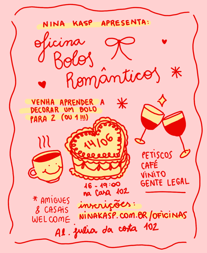 NINA KASP APRESENTA:
oficina
Bolos
Românticos
VENHA APRENDER A
DECORAR UM BOLO
PARA 2 (OU 1!!!)
14/06
16 - 19:00
na CASA 102
PETISCOS
CAFÉ
VINITO
GENTE LEGAL
* AMIGUES
& CASAIS
WELCOME
inscrições:
NINAKASP.COM.BR/OFICINAS
Al. julia da costa 102